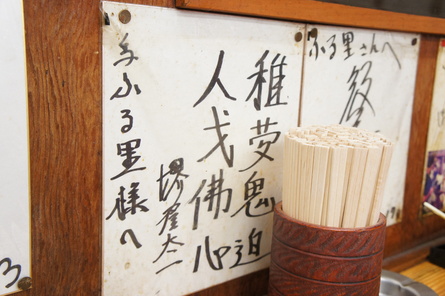 ふる里さんへ
稚夢鬼迫
人戈佛心
堺屋太一
与ふる里様へ